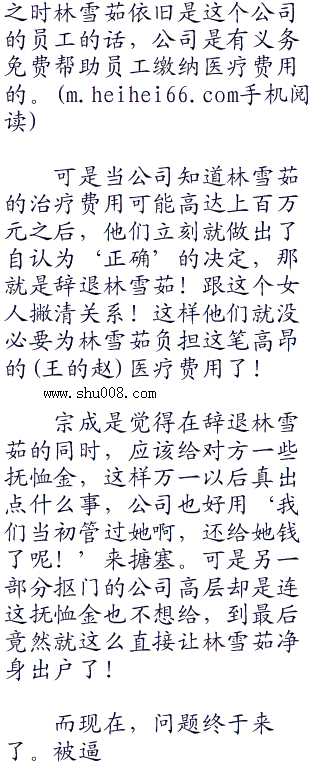 之时林雪茹依旧是这个公司
的员工的话，公司是有义务
免费帮助员工缴纳医疗费用
的。(m.heihei66.com手机阅
读)
可是当公司知道林雪茹
的治疗费用可能高达上百万
元之后，他们立刻就做出了
自认为‘正确’的决定，那
就是辞退林雪茹！跟这个女
人撇清关系！这样他们就没
必要为林雪茹负担这笔高昂
的(王的赵)医疗费用了！
www.shu008.com
宗成是觉得在辞退林雪
茹的同时，应该给对方一些
抚恤金，这样万一以后真出
点什么事，公司也好用‘我
们当初管过她啊，还给她钱
了呢！’来搪塞。可是另一
部分抠门的公司高层却是连
这抚恤金也不想给，到最后
竟然就这么直接让林雪茹净
身出户了！
而现在，问题终于来
了。被逼